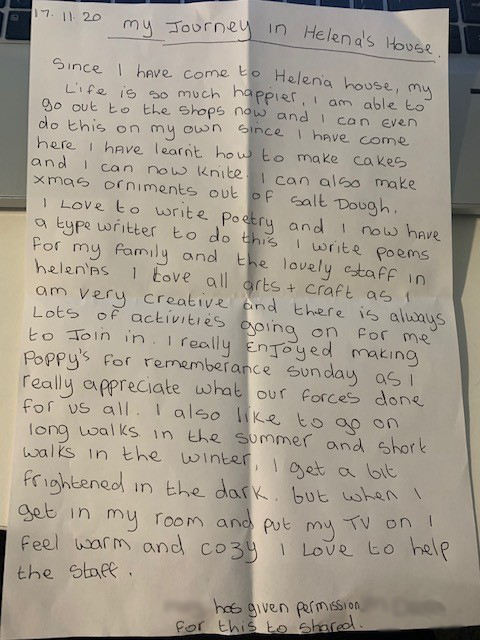 17.11.20
my Journey in Helena's House.
Since I have come to Helena house, my
Life is so much happier, I am able to
go out to the shops now and I can even
do this on my own since I have come
here I have learnt how to make cakes
and I can now knite. I can also make
xmas orniments out of salt Dough.
I Love to write poetry and I now have
a type writter to do this I write poems
for my family and the lovely staff in
helen'as I Love all arts + craft as I
am very creative and there is always
Lots of activities going on for me
to Join in. I really EnJoyed making
Poppy's for rememberance sunday as I
really appreciate what our forces done
for us all. I also like to go on
long walks in the summer and short
walks in the winter, I get a bit
frightened in the dark. but when I
get in my room and put my TV on I
feel warm and cozy I Love to help
the staff.
has given permission
for this to shared.